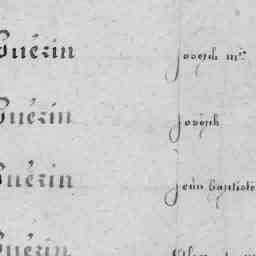 Guérin Joseph m.
Guérin Joseph
Guérin Jean Baptiste
Guérin